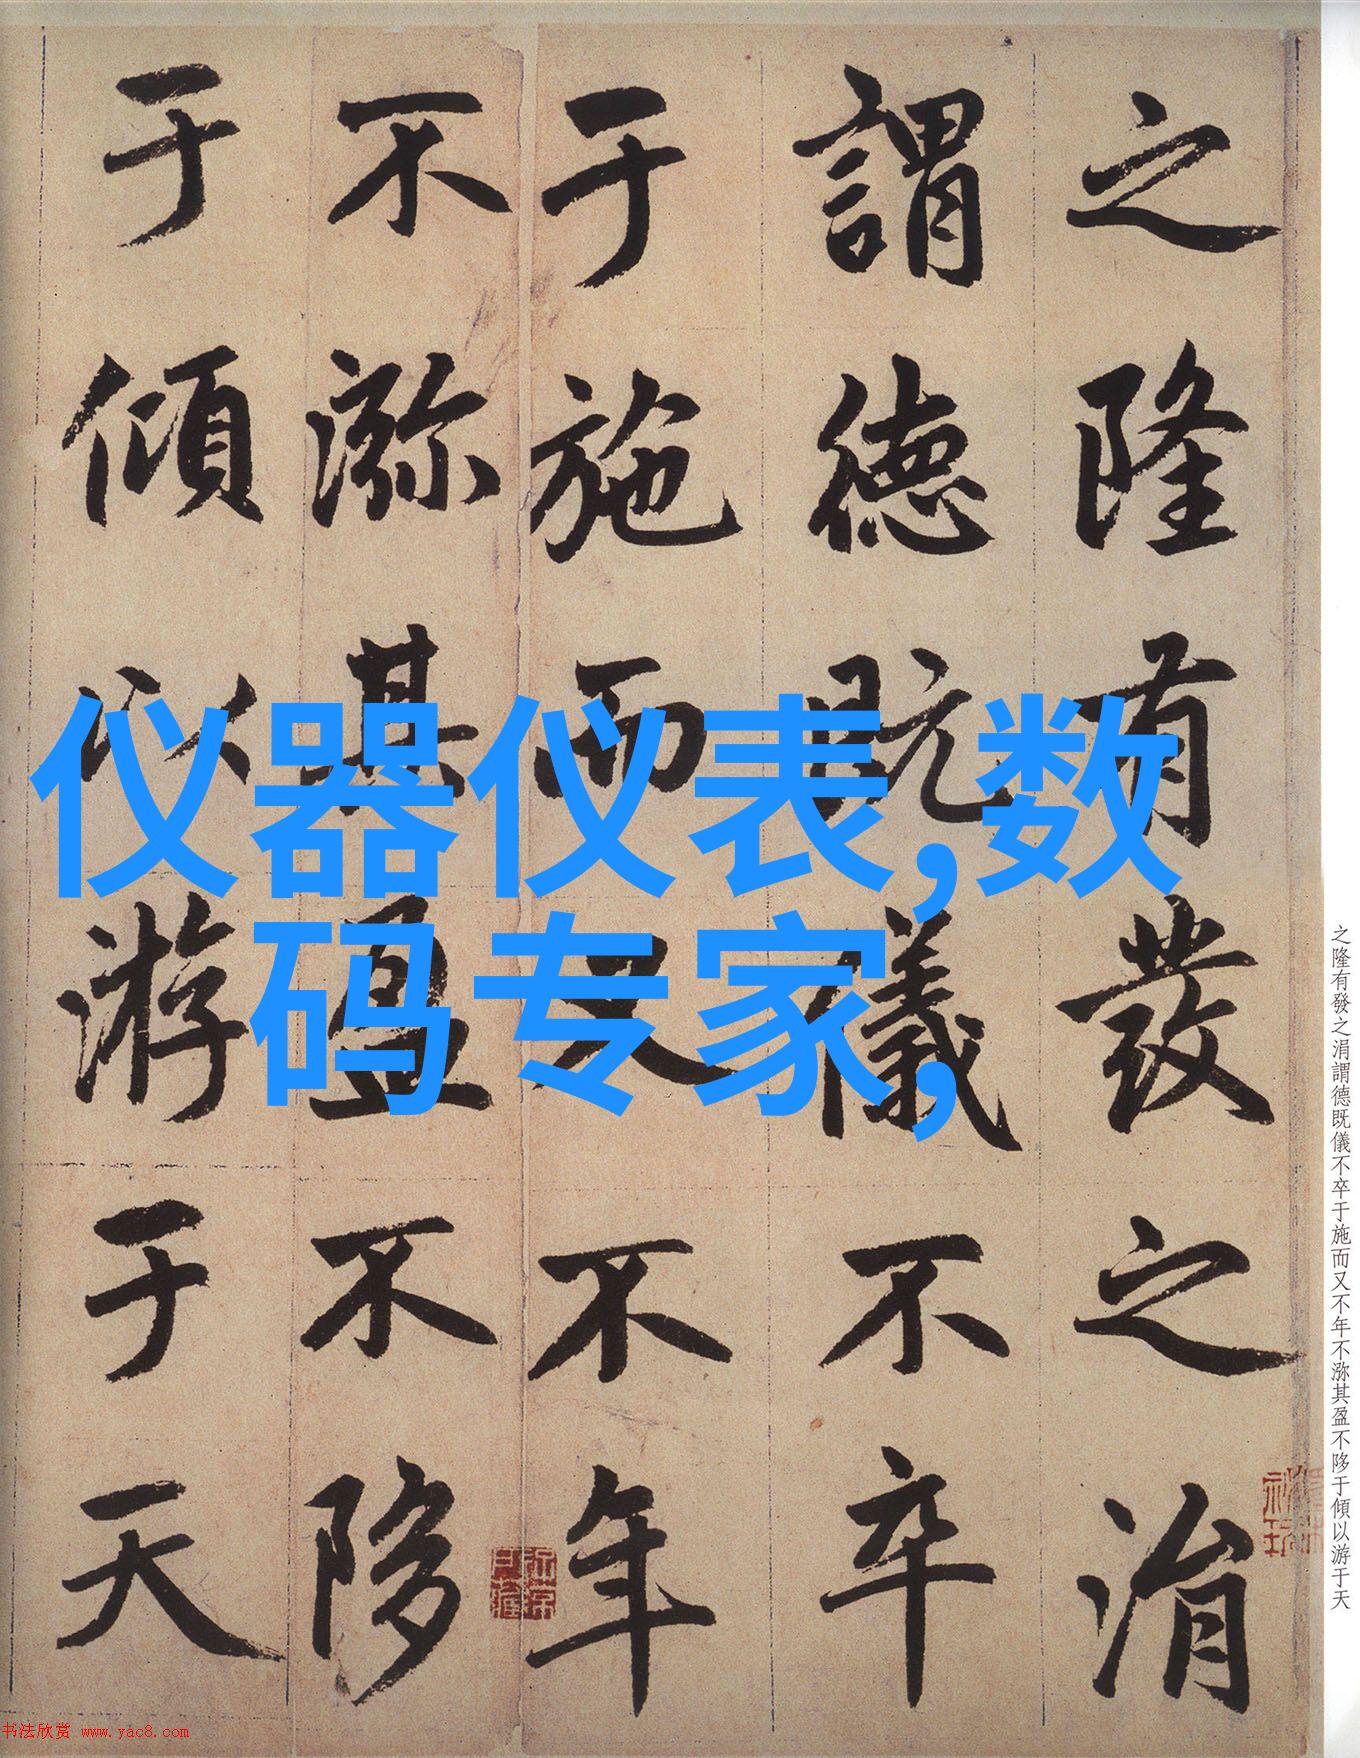 之隆有發之涓
謂德既儀不卒
于施而又不年
不㳽其盈不陊
于傾以游于天
仪器仪表,数
码专家,
之隆有發之涓謂德既儀不卒于施而又不年不㳽其盈不陊于傾以游于天
书法欣赏 www.yac8.com